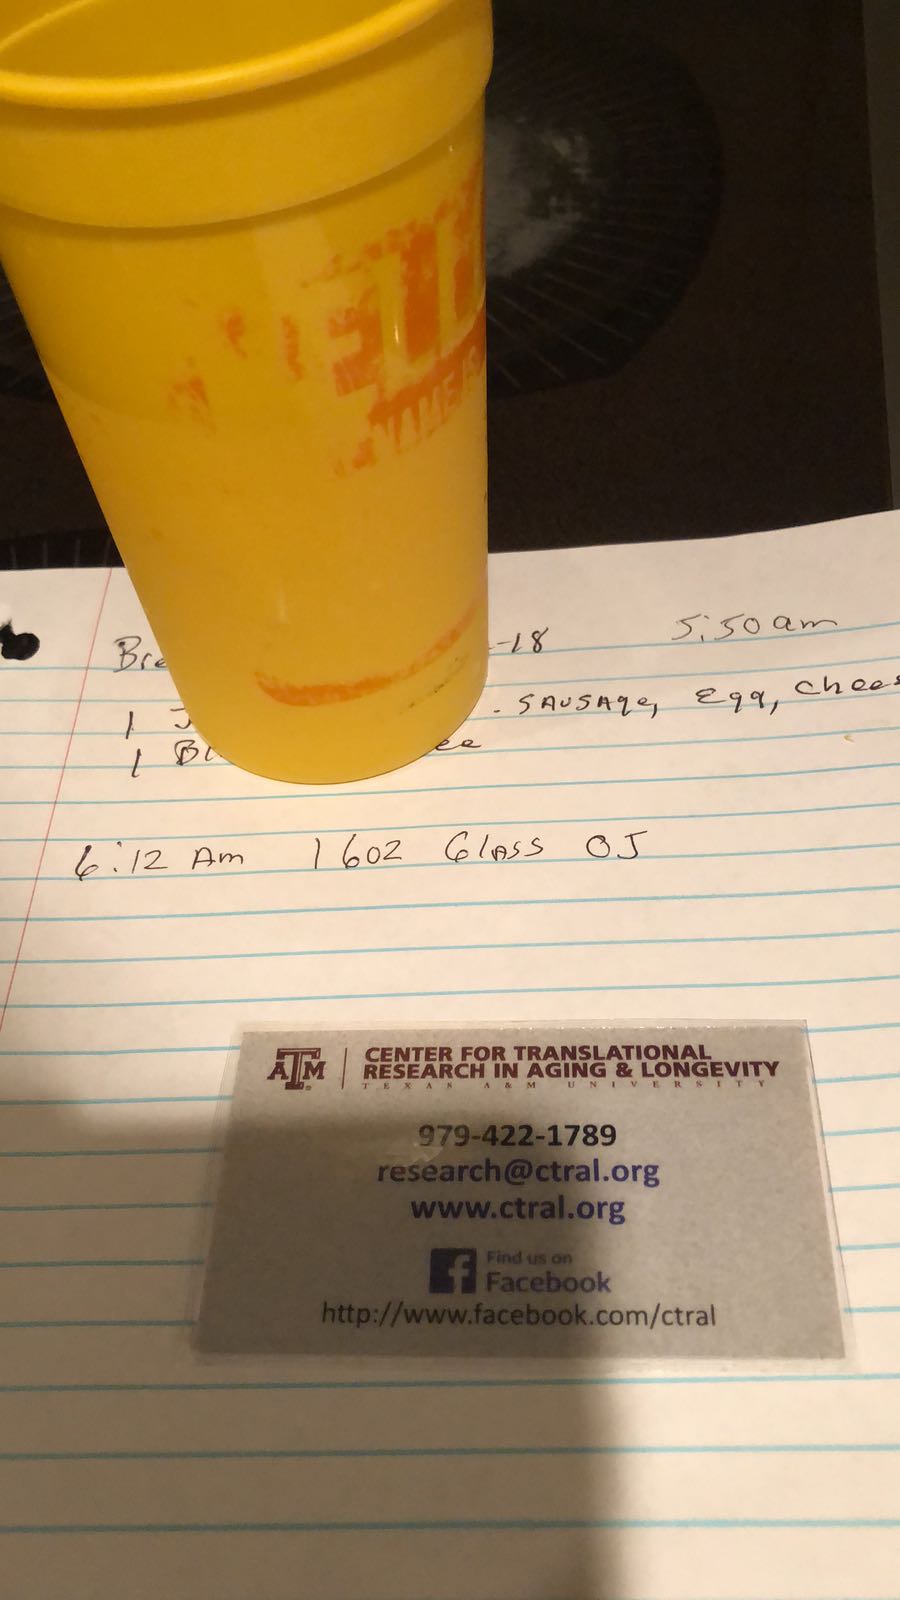 NAME IS
Bre -18 5:50 am
1 J . SAUSAge, Egg, Chees
1 Bl ee
6:12 Am 16oz Glass OJ
ATM CENTER FOR TRANSLATIONAL
RESEARCH IN AGING & LONGEVITY
TEXAS A&M UNIVERSITY
979-422-1789
research@ctral.org
www.ctral.org
f Find us on
Facebook
http://www.facebook.com/ctral